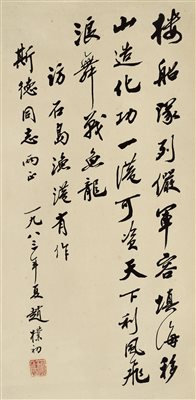 楼船隊列儼軍容填海移
山造化功一港可资天下利風飛
浪舞戰魚龍
訪石島漁港有作
斯德同志两正
一九八三年夏趙樸初